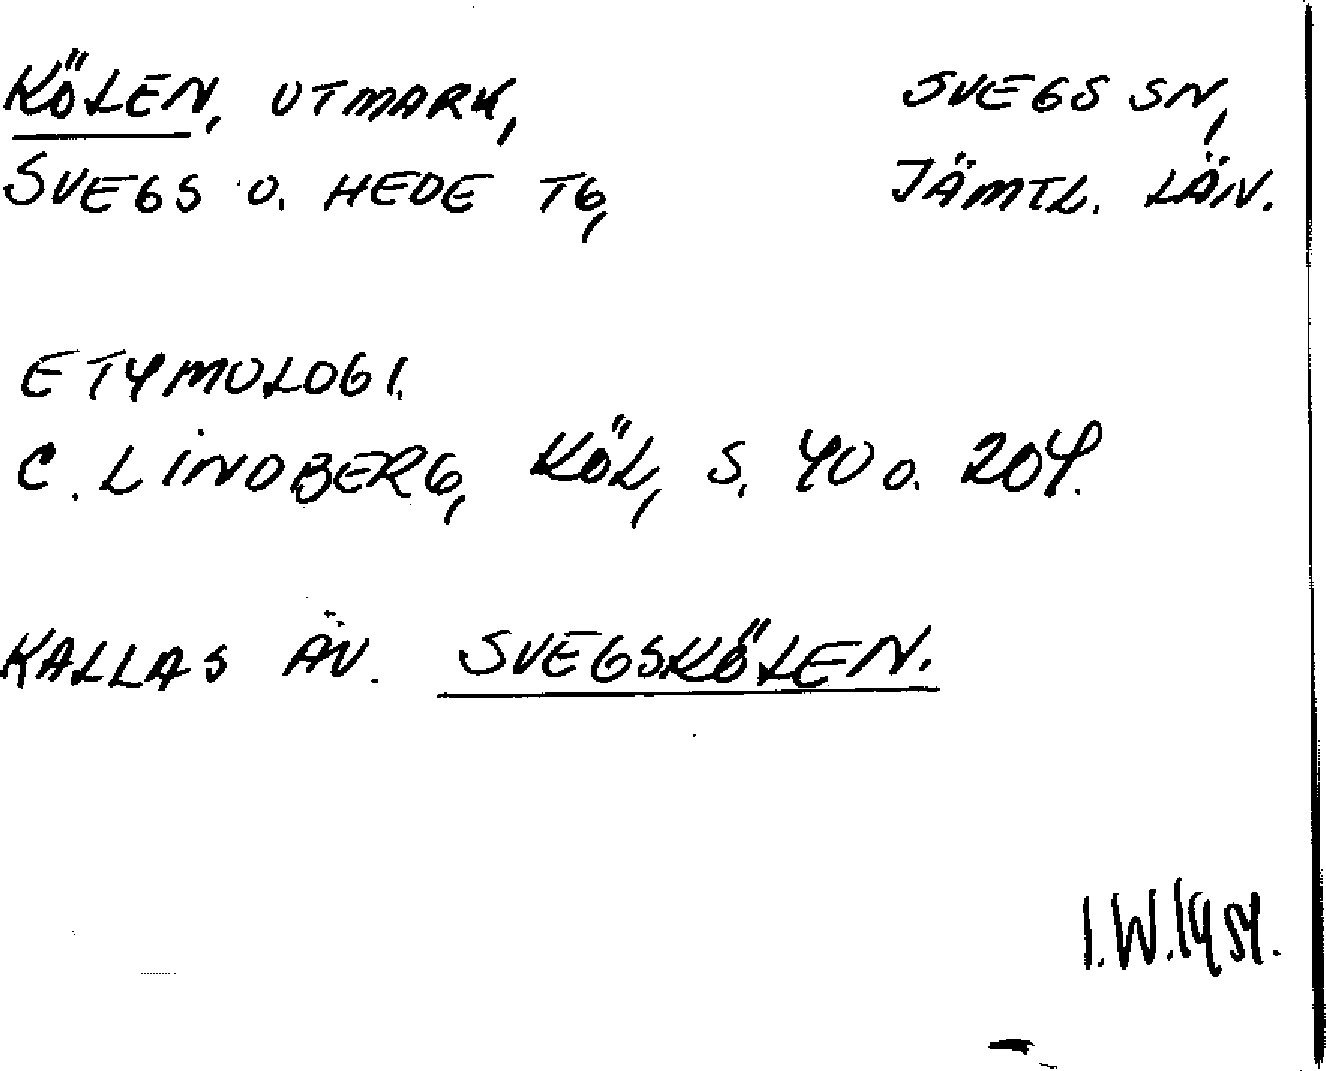 KÖLEN, UTMARK, SVEGS SN,
SVEGS O. HEDE TG, JÄMTL. LÄN.
ETYMOLOGI.
C. LINDBERG, KÖL, S. 40 O. 204.
KALLAS ÄV. SVEGSKÖLEN.
I.W.